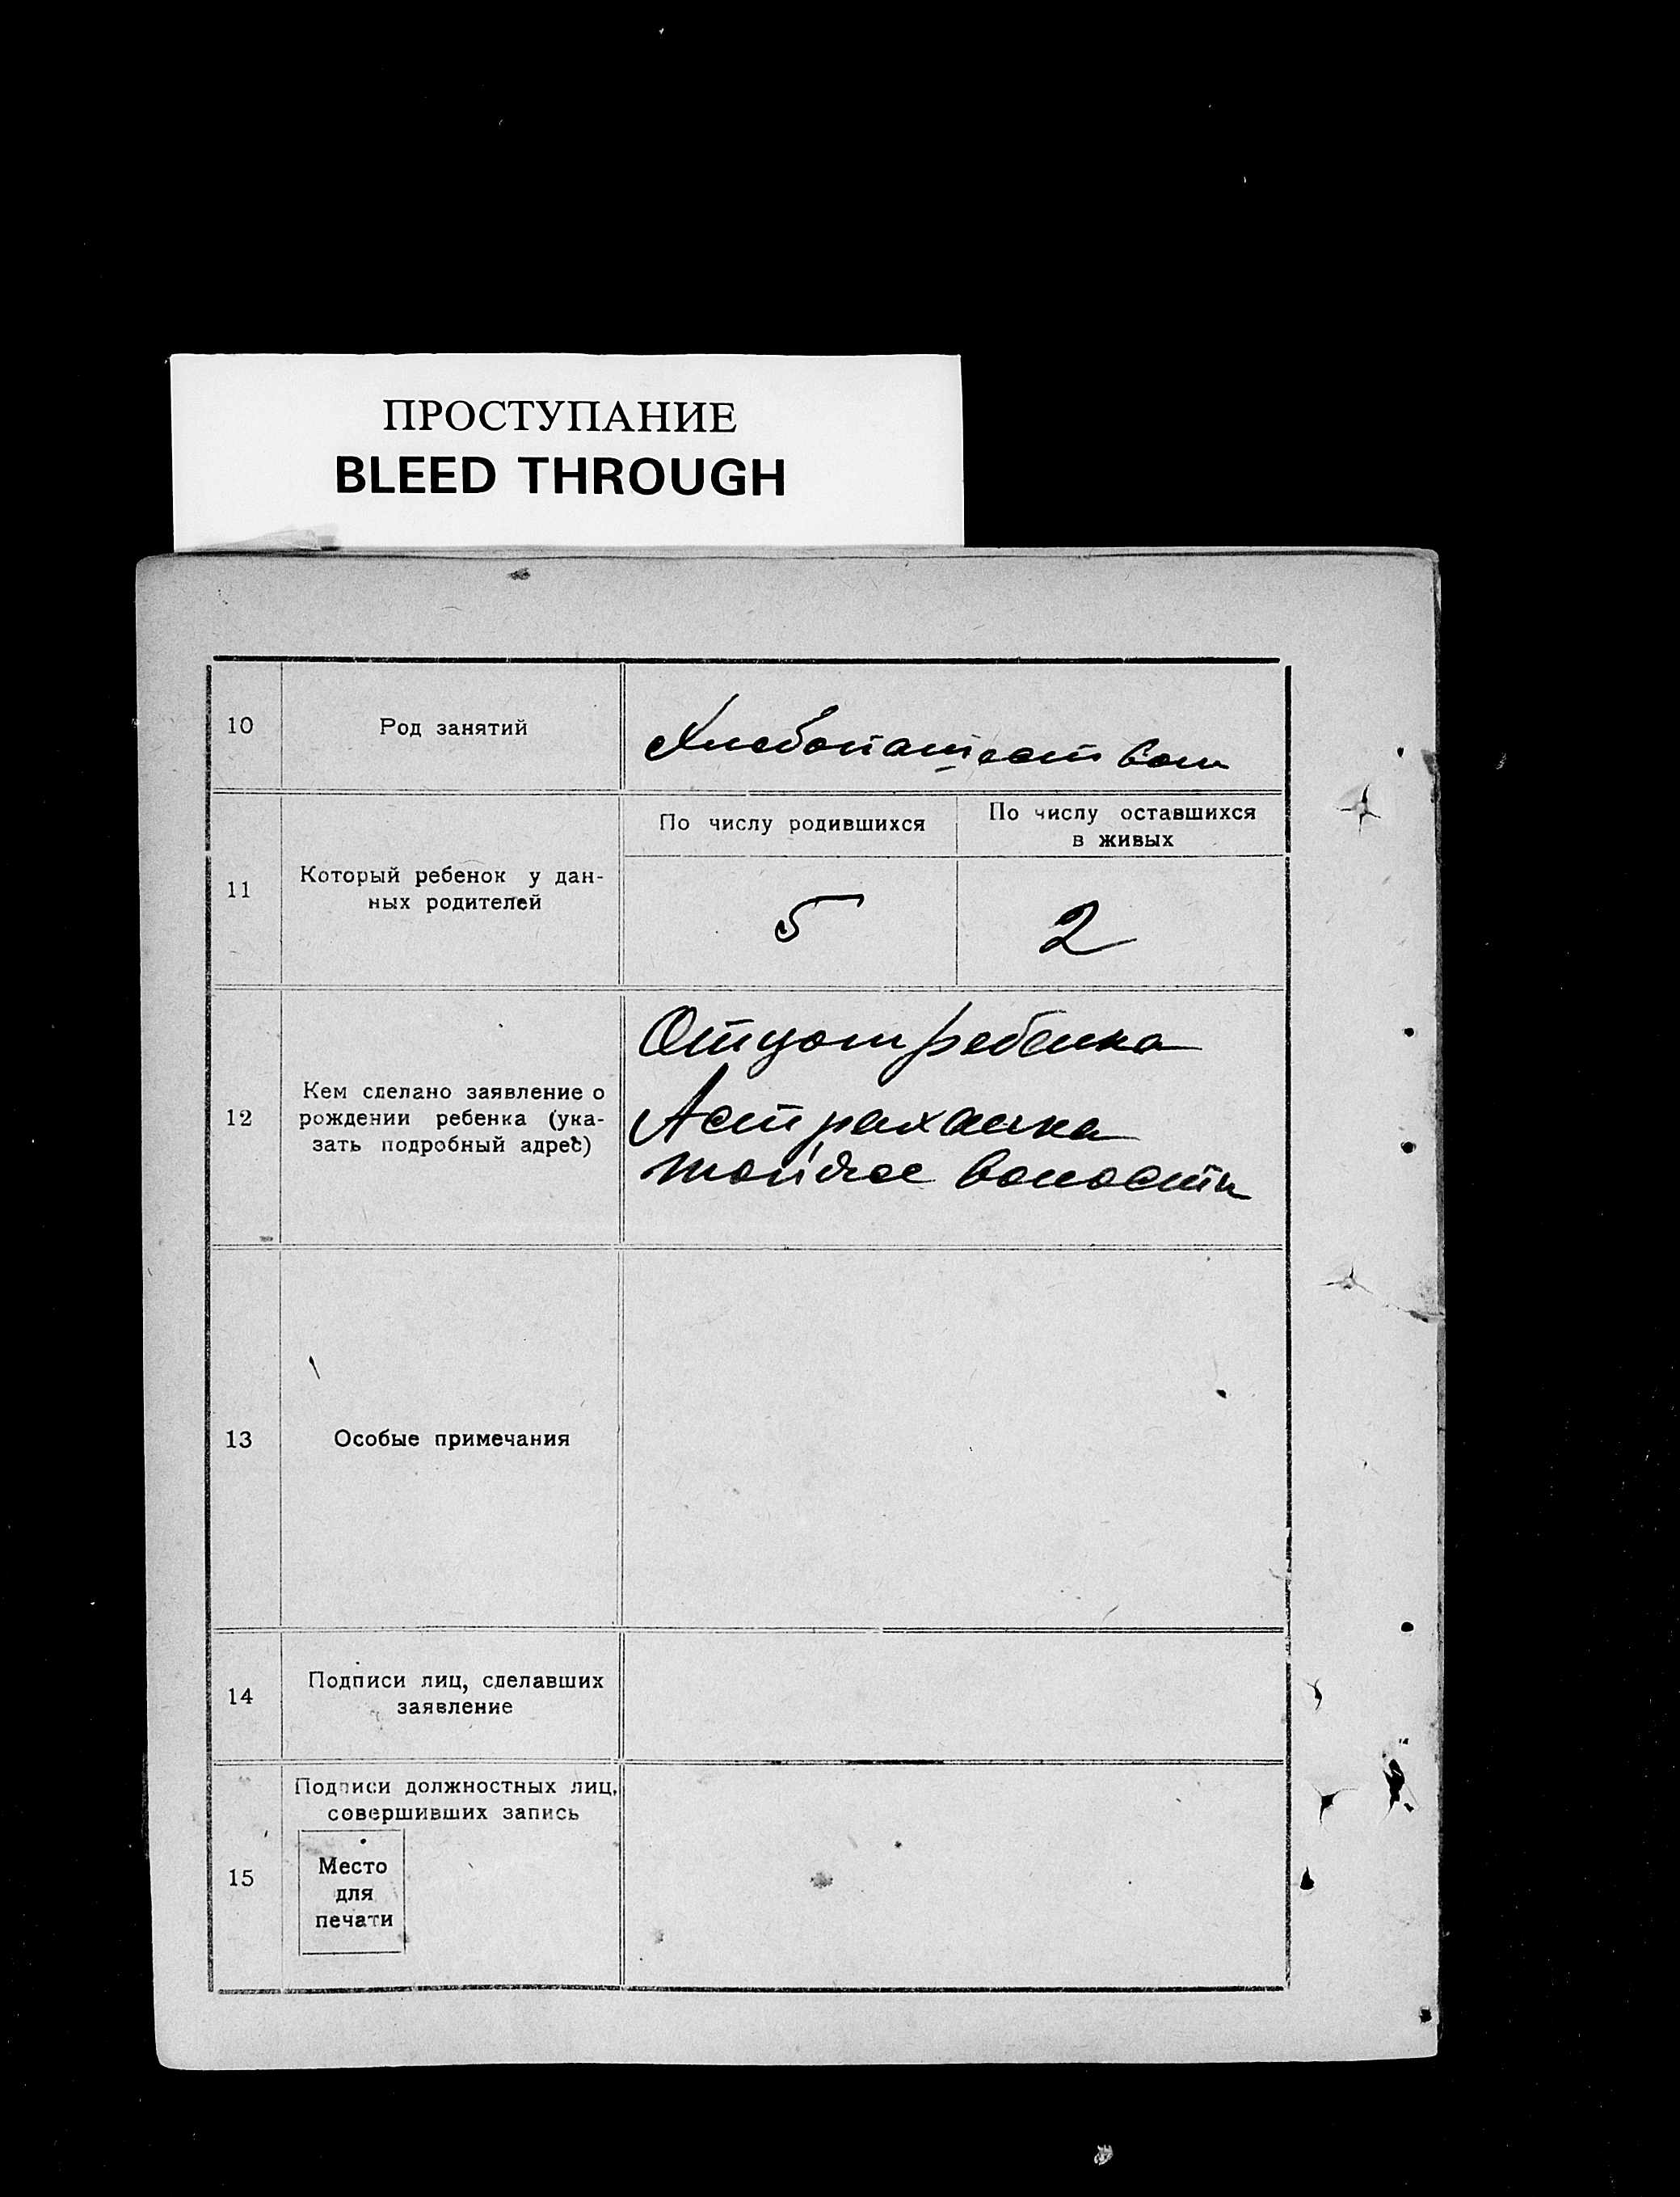 ПРОСТУПАНИЕ
BLEED THROUGH
10
Род занятий
Хлебопашеством
11
Который ребенок у дан-
ных родителей
По числу родившихся
По числу оставшихся
в живых
5
2
12
Кем сделано заявление о
рождении ребенка (ука-
зать подробный адрес)
Отцом ребенка
Астраханка
той же волости
13
Особые примечания
14
Подписи лиц, сделавших
заявление
15
Подписи должностных лиц,
совершивших запись
Место
для
печати